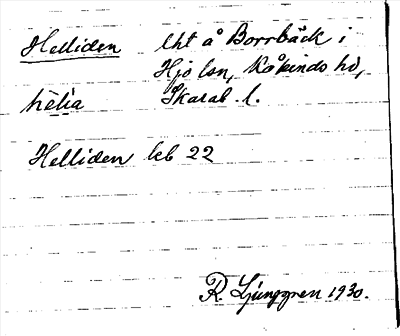 Helliden lht å Borrbäck i
Hjo lsn, Kåkinds hd,
hèlia Skarab. l.
Helliden lèb 22
R. Ljunggren 1930.